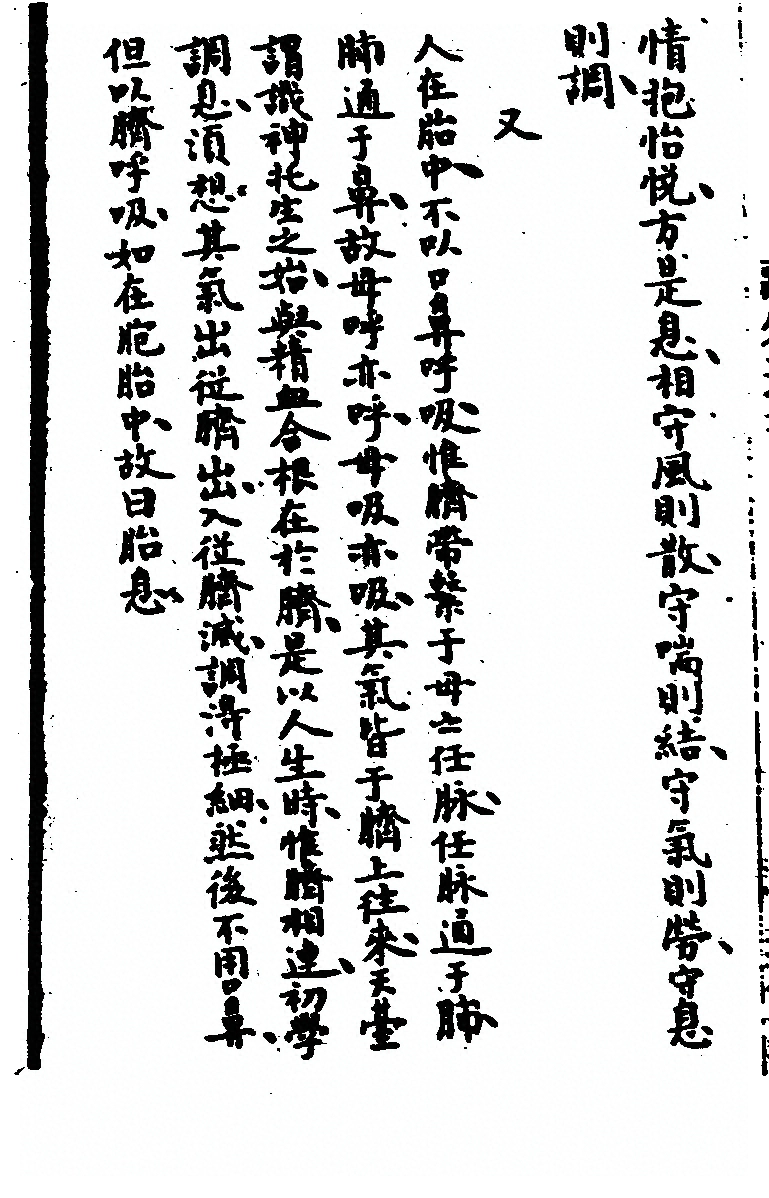 情抱怡悅、方是息、相守風則散、守喘則結、守氣則勞、守息
則調、
又
人在胎中、不以口鼻呼吸、惟臍帶繫于母之任脉、任脉通于肺、
肺通于鼻、故母呼亦呼、母吸亦吸、其氣皆于臍上往來、天臺
謂識神托生之始、與精血合根在於臍、是以人生時、惟臍相連、初學
調息、須想其氣出從臍出、入從臍滅、調得極細、然後不用口鼻、
但以臍呼吸、如在胞胎中、故曰胎息、